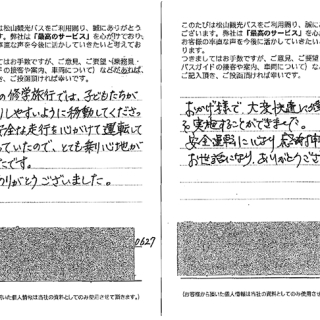 このたびは松山観光バスをご利用賜り、誠にありがとう
す。弊社は「最高のサービス」を心がけており、
直な声を今後に活かしていきたいと考えてお
てはお手数ですが、ご意見、ご要望(乗務員・
ドの接客や案内、車両について)などがあれば、
き、ご投函頂ければ幸いです。
の修学旅行では、子どもたちが
しやすいように移動してくださっ
安全な走行を心がけて運転して
っていたので、とても乗り心地が
たです。
ありがとうございました。
0627
いた個人情報は当社の資料としてのみ使用させて頂きます。)
このたびは松山観光バスをご利用賜り、誠
ございます。弊社は「最高のサービス」を心
お客様の率直な声を今後に活かしていきたい
ります。
つきましてはお手数ですが、ご意見、ご要望
バスガイドの接客や案内、車両について)な
ご記入頂き、ご投函頂ければ幸いです。
おかげ様で、大変快適に
を実施することができました。
安全運転に
お世話になり、ありがとうござ
(お客様から頂いた個人情報は当社の資料としてのみ使用させ